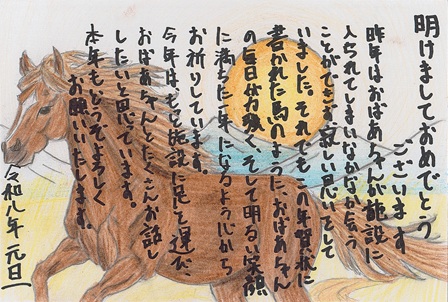 明けましておめでとう
ございます
昨年はおばあちゃんが施設に
入られてしまいなかなか会う
ことができず寂しい思いをして
いました。それでもこの年賀状に
書かれた馬のように、おばあちゃん
の毎日が力強く、そして明るい笑顔
に満ちた一年になるよう心から
お祈りしています。
今年は、もっと施設に足を運び、
おばあちゃんとたくさんお話し
したいと思っています。
本年もどうぞよろしく
お願いいたします。
令和八年 元旦